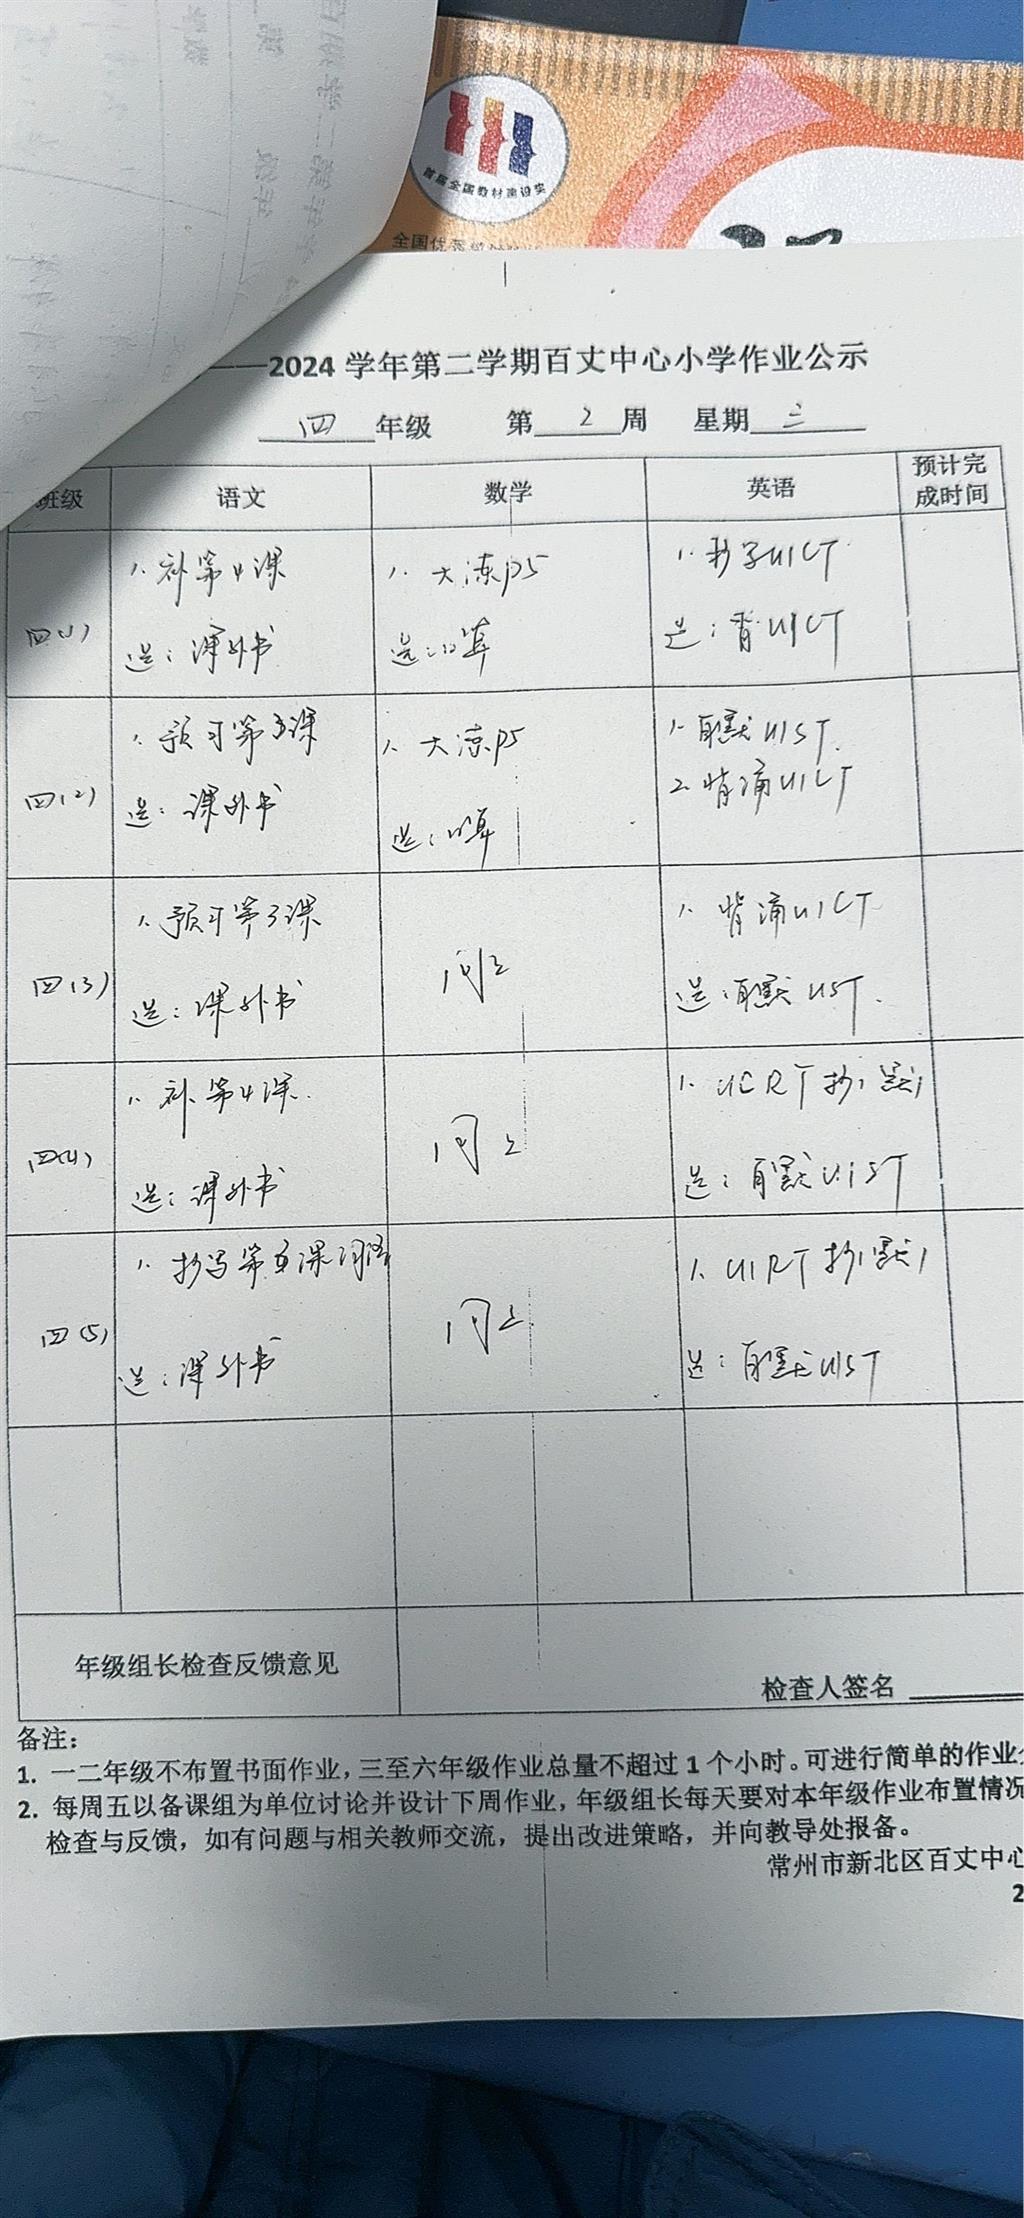 首届全国教材建设奖
全国优秀
——2024 学年第二学期百丈中心小学作业公示
四 年级 第 2 周 星期 三
班级 语文 数学 英语 预计完成时间
四(1)
1. 补第4课
选: 课外书
1. 大练P5
选: 口算
1. 抄写U1CT
选: 背U1CT
四(2)
1. 预习第3课
选: 课外书
1. 大练P5
选: 口算
1. 自默U1ST.
2. 背诵U1CT
四(3)
1. 预习第3课
选: 课外书
同上
1. 背诵U1CT
选: 自默U1ST.
四(4)
1. 补第4课.
选: 课外书
同上
1. 抄1默1
选: 自默U1ST
四(5)
1. 抄写第 课词语
选: 课外书
同上
1. U1RT 抄1默1
选: 自默U1ST
年级组长检查反馈意见
检查人签名
备注:
1. 一二年级不布置书面作业，三至六年级作业总量不超过 1 个小时。可进行简单的作业
2. 每周五以备课组为单位讨论并设计下周作业，年级组长每天要对本年级作业布置情况
检查与反馈，如有问题与相关教师交流，提出改进策略，并向教导处报备。
常州市新北区百丈中心
2